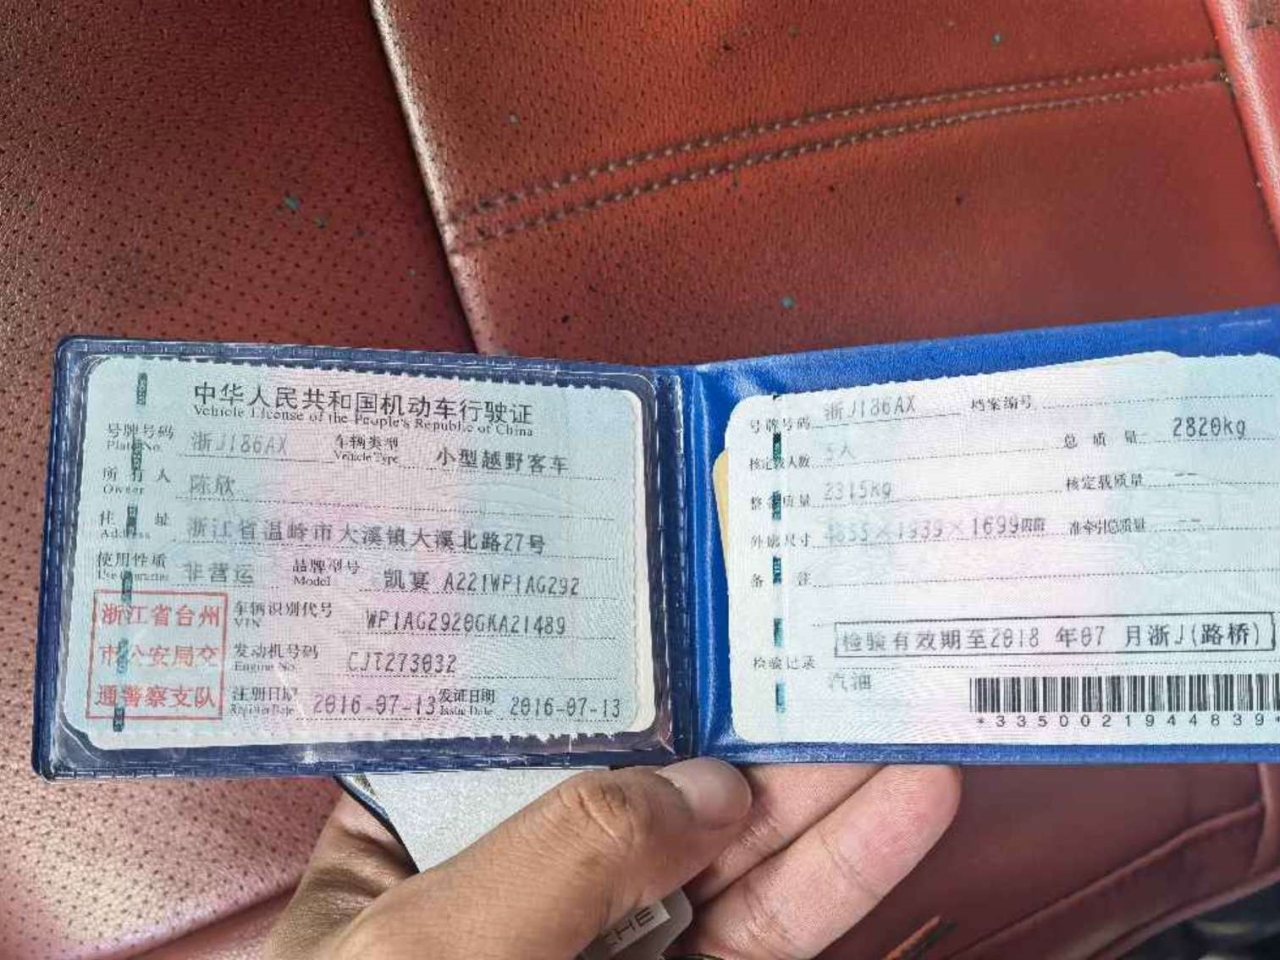 中华人民共和国机动车行驶证
Vehicle License of the People's Republic of China
号牌号码 浙J186AX 车辆类型 小型越野客车
Plate No. Vehicle Type
所有人 陈欣
Owner
住址 浙江省温岭市大溪镇大溪北路27号
Address
使用性质 非营运 品牌型号 凯宴 A221WP1AG292
Use Character Model
浙江省台州
市公安局交
通警察支队
车辆识别代号 WP1AG2920GKA21489
VIN
发动机号码 CJT273032
Engine No.
注册日期 2016-07-13 发证日期 2016-07-13
Register Date Issue Date
号牌号码 浙J186AX 档案编号
核定载人数 5人 总质量 2820kg
整备质量 2315kg 核定载质量 --
外廓尺寸 4855×1939×1699 准牵引总质量 --
备注
检验有效期至2018年07月浙J(路桥)
检验记录
汽油
*3350021944839*
CHE